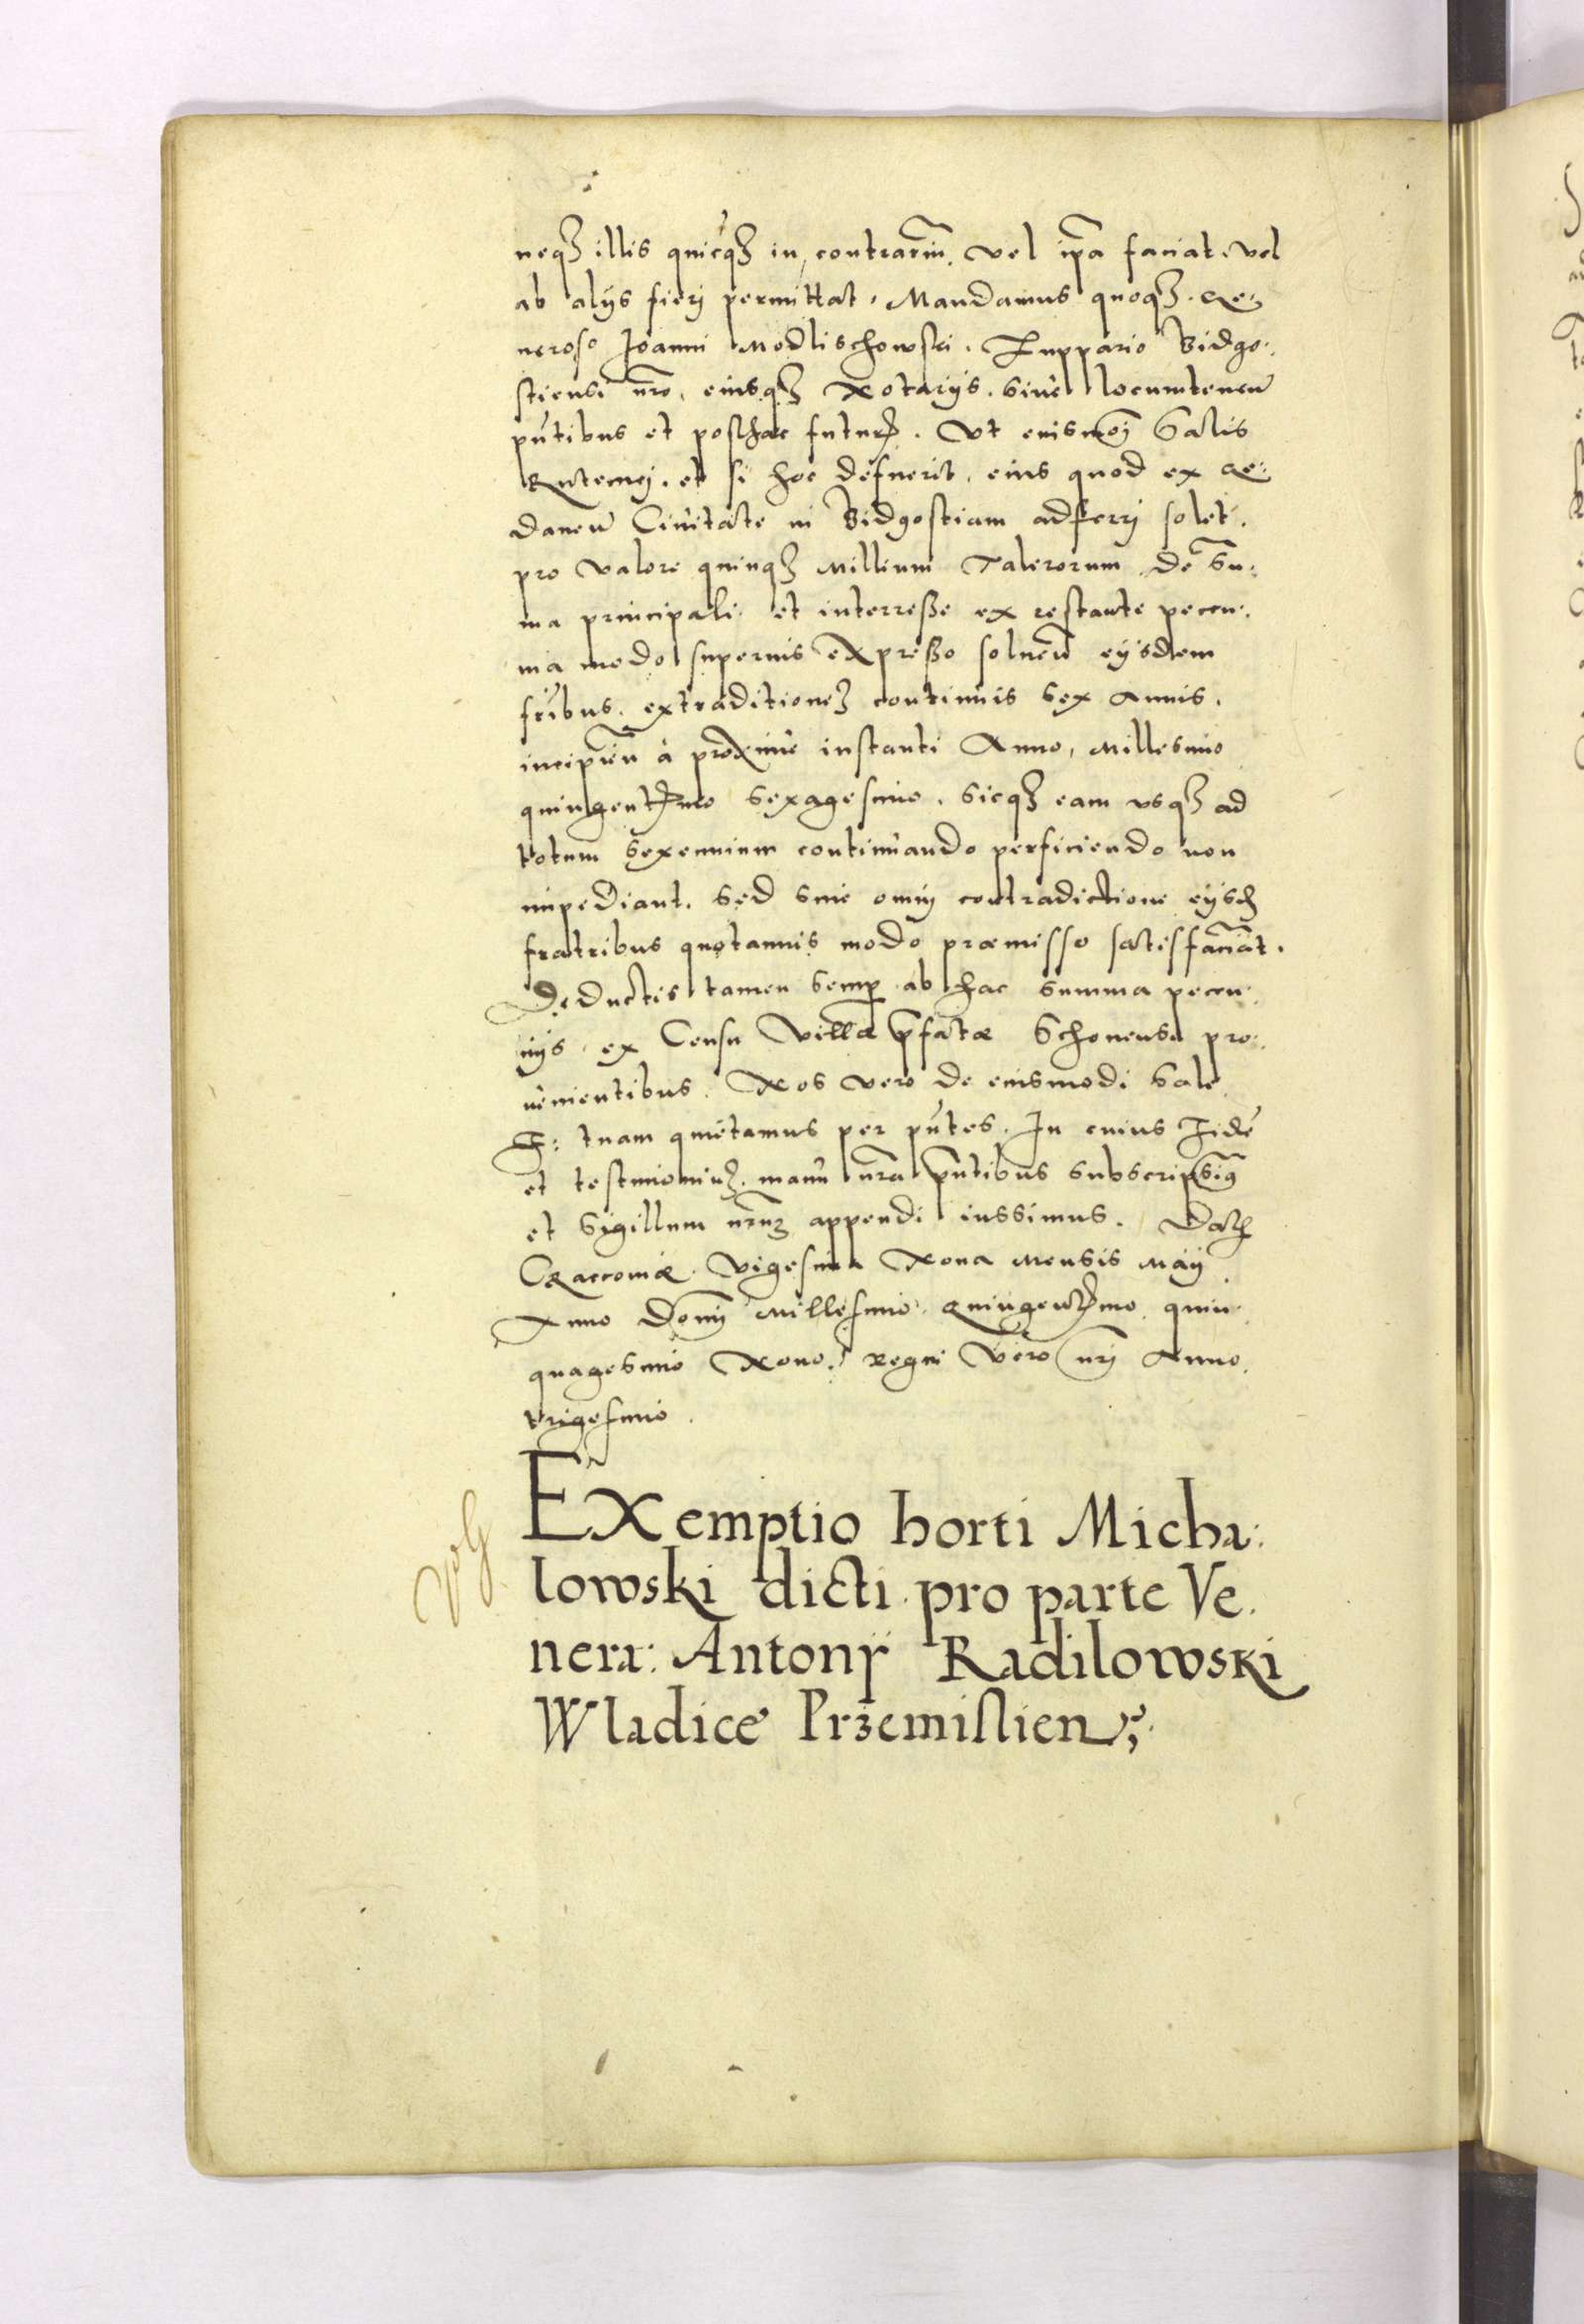 neqȝ illis quicqȝ in contrariũ. vel ip̃a faciat, vel
ab alijs fierj permittat. Mandamus quoqȝ. Ge-
neroso Joanni Modlischowski. Zuppario Bidgo-
stiensi nr̃o, eiusqȝ Notarijs. siue locumteneñ
pñtibus et posthac futuris. Vt eiusmõi Salis
Rutemej. et si hoc defuerit, eius quod ex Ge-
daneñ Ciuitate in Bidgostiam adferrj solet.
pro valore quinqȝ Millium Talerorum de Su-
ma principali et interresse ex restante peccu-
nia modo superius Expresso solueñ eijsdem
fr̃ibus. extraditioneȝ continuis sex Annis.
incipieñ à proxime instanti Anno, Millesimo
quingentesimo Sexagesimo. Sicqȝ eam vsqȝ ad
totum Sexennium continuando perficiendo non
impediant. sed sine omnj contradictione eijsdẽ
fratribus quotannis modo præmisso satisfaciãt.
Deductis tamen semp ab hac summa peccu-
nijs ex Censu Villæ p̃fatæ Schonensee pro-
uenientibus. Nos vero de eiusmodi Sale
F: tuam quietamus per pñtes. In cuius Fidẽ
et testimoniuȝ. manu nr̃a pñtibus subscripsim9
et Sigillum nr̃uȝ appendi iussimus. Datȝ
Craccouiæ. Vigesima Nona Mensis Maij
Anno Domj̃ Millesimo Quingentesimo quin-
quagesimo Nono. Regni Vero nr̃j Anno
trigesimo.
EXemptio horti Micha:
lowski dicti pro parte Ve.
nera: Antonij Radilowski
Wladice Przemislien: